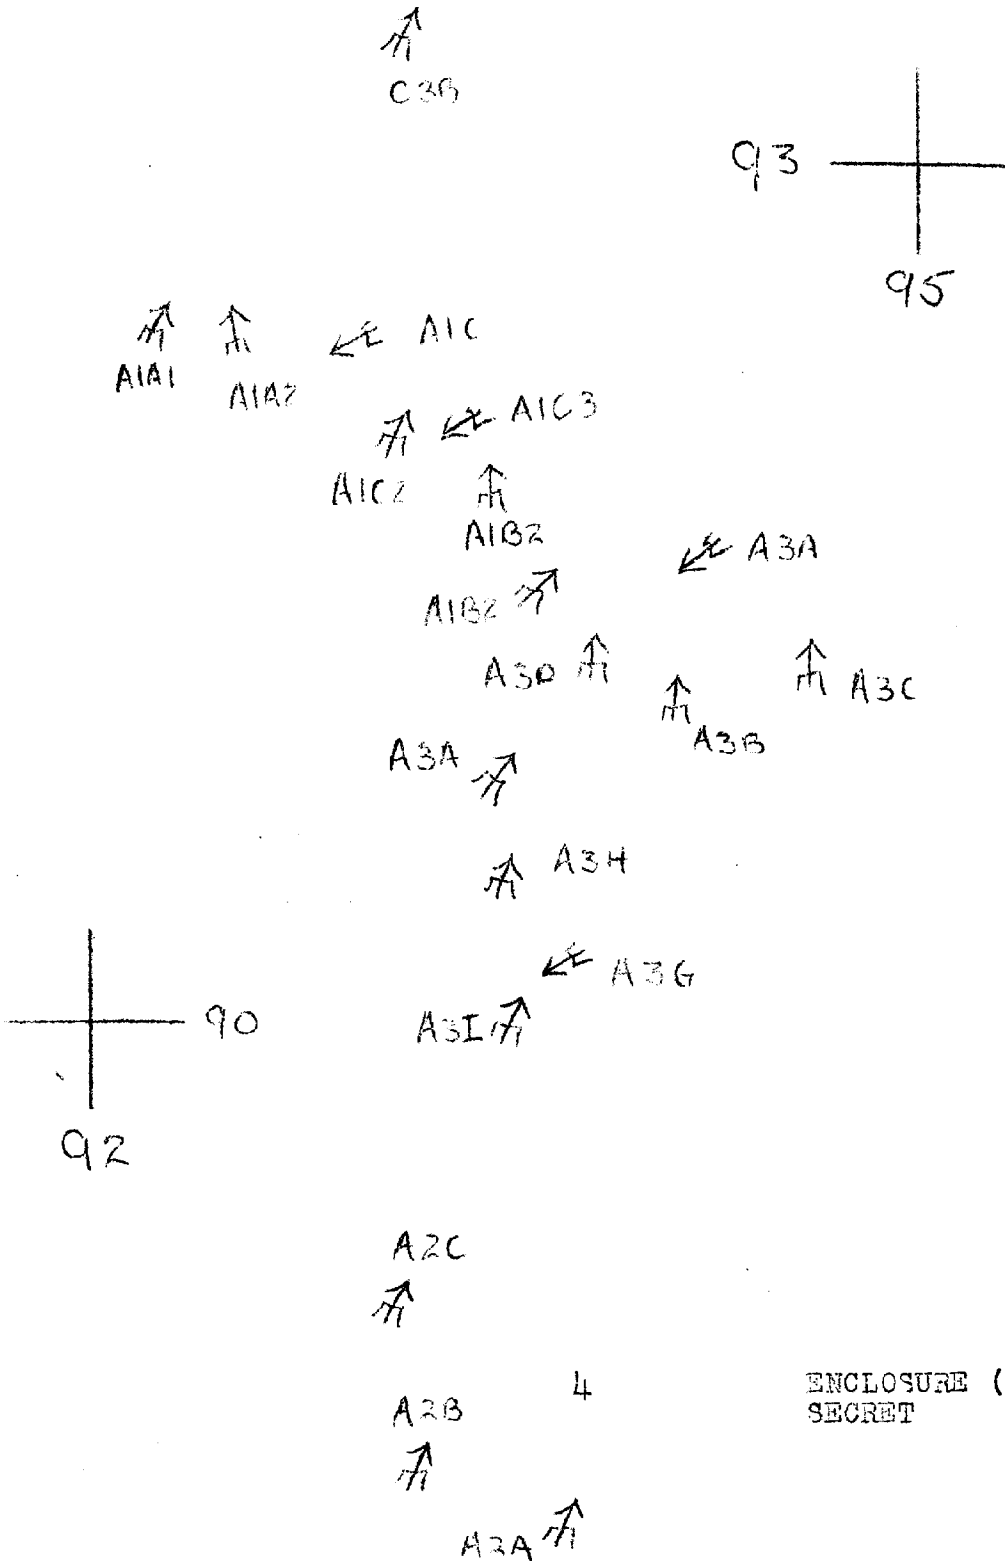 C3B
93
95
A1A1
A1A2
A1C
A1C3
A1C2
A1B2
A3A
A1B2
A3D
A3C
A3B
A3A
A3H
A3G
90
A3I
92
A2C
4
ENCLOSURE (
SECRET
A2B
A2A